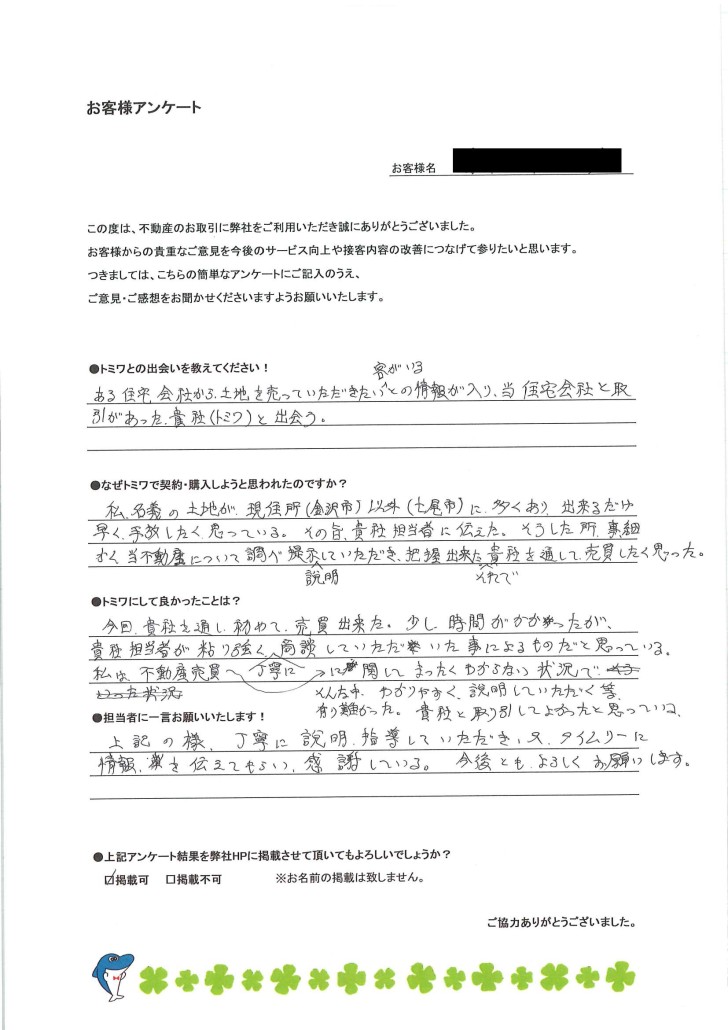 お客様アンケート
お客様名
この度は、不動産のお取引に弊社をご利用いただき誠にありがとうございました。
お客様からの貴重なご意見を今後のサービス向上や接客内容の改善につなげて参りたいと思います。
つきましては、こちらの簡単なアンケートにご記入のうえ、
ご意見・ご感想をお聞かせくださいますようお願いいたします。
●トミワとの出会いを教えてください！
客がいる
ある住宅会社から、土地を売っていただきたいとの情報が入り、当住宅会社と取
引があった、貴社(トミワ)と出会う。
●なぜトミワで契約・購入しようと思われたのですか？
私名義の土地が、現住所(金沢市)以外(七尾市)に、多くあり、出来るだけ
早く、手放したく思っている。その旨、貴社担当者に伝えた。そうした所、事細
かく、当不動産について調べ提示していただき、把握出来た貴社を通して、売買したく思った。
説明 それで
●トミワにして良かったことは？
今回、貴社を通し、初めて、売買出来た。少し、時間がかかったが、
貴社担当者が粘り強く、商談していただいた事によるものだと思っている。
私は、不動産売買 丁寧に に関してまったくわからない状況で、
そんな中、わかりやすく、説明していただく等、
有り難かった。貴社と取り引きしてよかったと思っている。
●担当者に一言お願いいたします！
上記の様、丁寧に説明、指導していただき、又、タイムリーに
情報、を伝えてもらい、感謝している。今後とも、よろしくお願いします。
●上記アンケート結果を弊社HPに掲載させて頂いてもよろしいでしょうか？
☑掲載可 □掲載不可 ※お名前の掲載は致しません。
ご協力ありがとうございました。